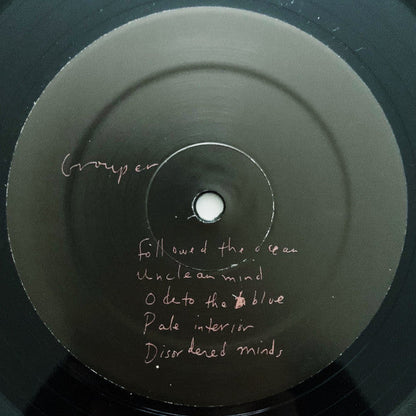 Grouper
followed the ocean
unclean mind
Ode to the blue
Pale interior
Disordered minds